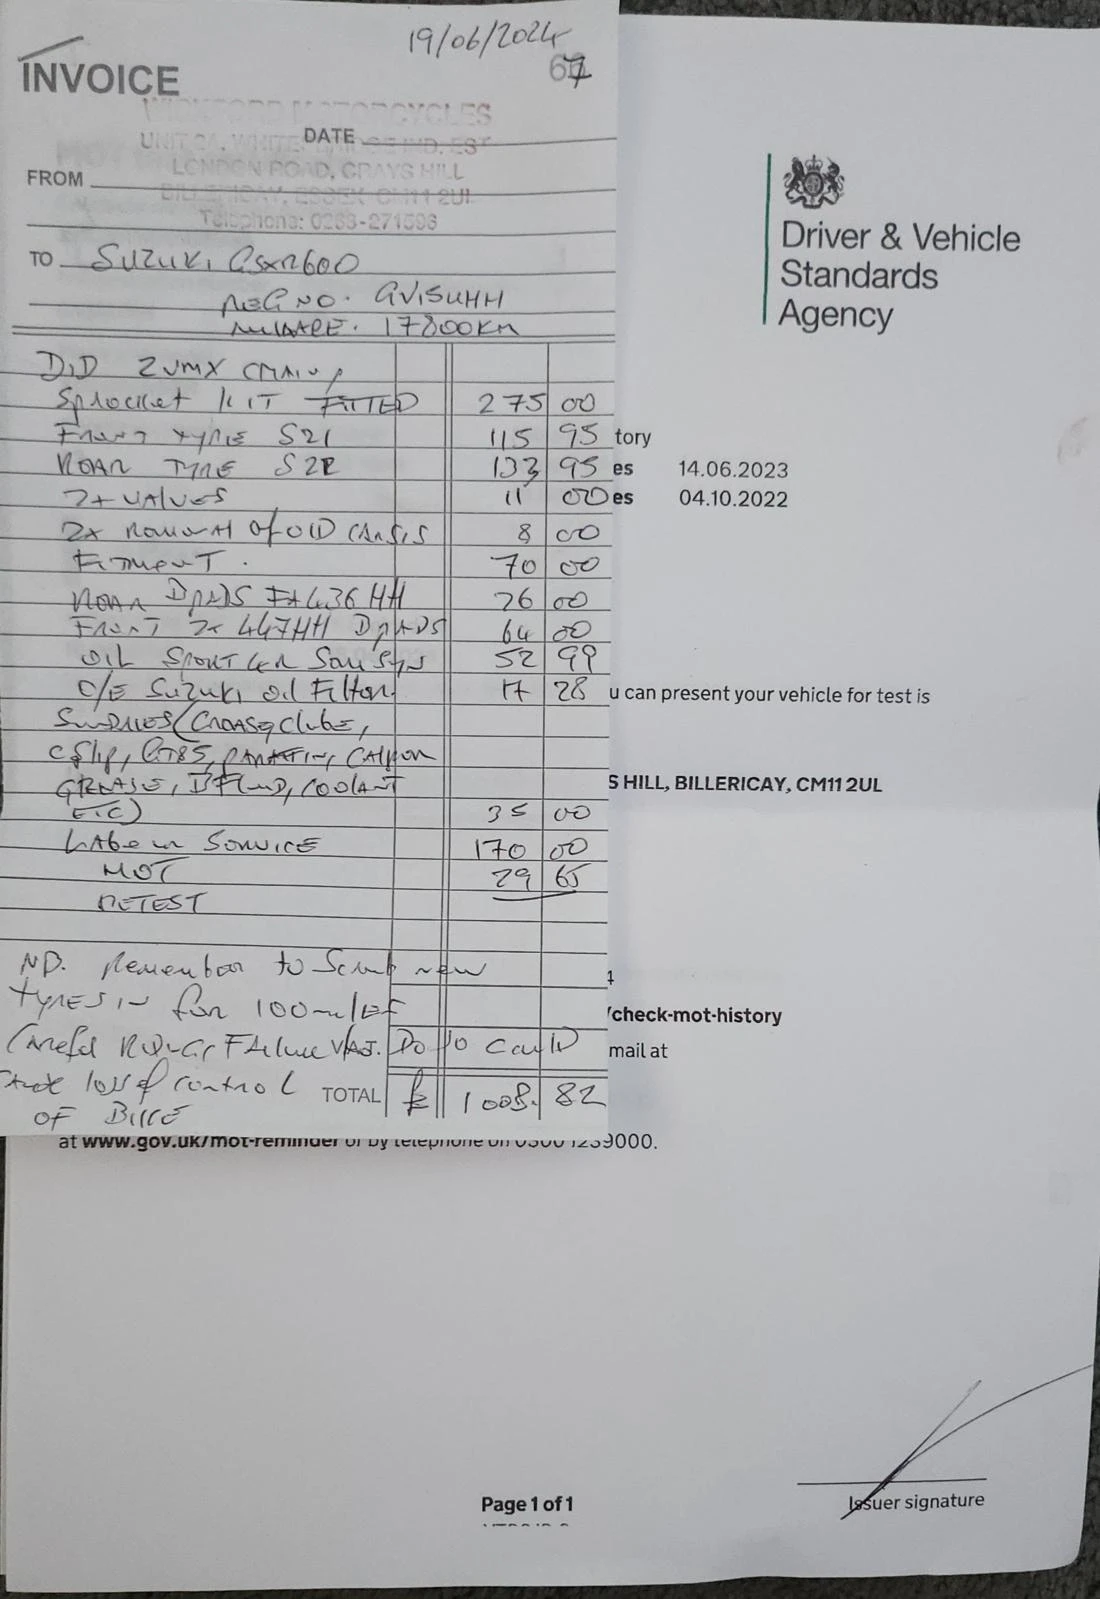 19/06/2024
67
INVOICE
MOTORCYCLES
DATE IND. EST
LONDON ROAD, CRAYS HILL
FROM
BILLERICAY, ESSEX CM11 2UL
Telephone: 0268-271596
TO SUZUKI GSXR600
REG NO. GV15UHH
MILAGE. 17800KM
DID ZVMX CHAIN,
Sprocket KIT FITTED 275 00
FRONT TYRE S21 115 95
REAR TYRE S22 133 95
2x VALVES 11 00
2x Removal of OLD 8 00
FITMENT. 70 00
REAR BPADS FA436HH 26 00
FRONT 2x 447HH BPADS 64 00
OIL SPORT 4LTR 52 99
O/E Suzuki oil Filter 17 28
SUNDRIES (
Cslip, GT85, CALIPER
GREASE, BFLUID, COOLANT
ETC) 35 00
Labour SERVICE 170 00
MOT 29 65
RETEST
NB. Remember to Scrub new
TYRES IN for 100 miles
Careful RIDING Failure Do So Could
loss of control TOTAL £ 1008. 82
OF BIKE
Driver & Vehicle
Standards
Agency
tory
es 14.06.2023
es 04.10.2022
u can present your vehicle for test is
S HILL, BILLERICAY, CM11 2UL
/check-mot-history
mail at
at www.gov.uk/mot-reminder or by telephone on 0300 1239000.
Page 1 of 1
Issuer signature